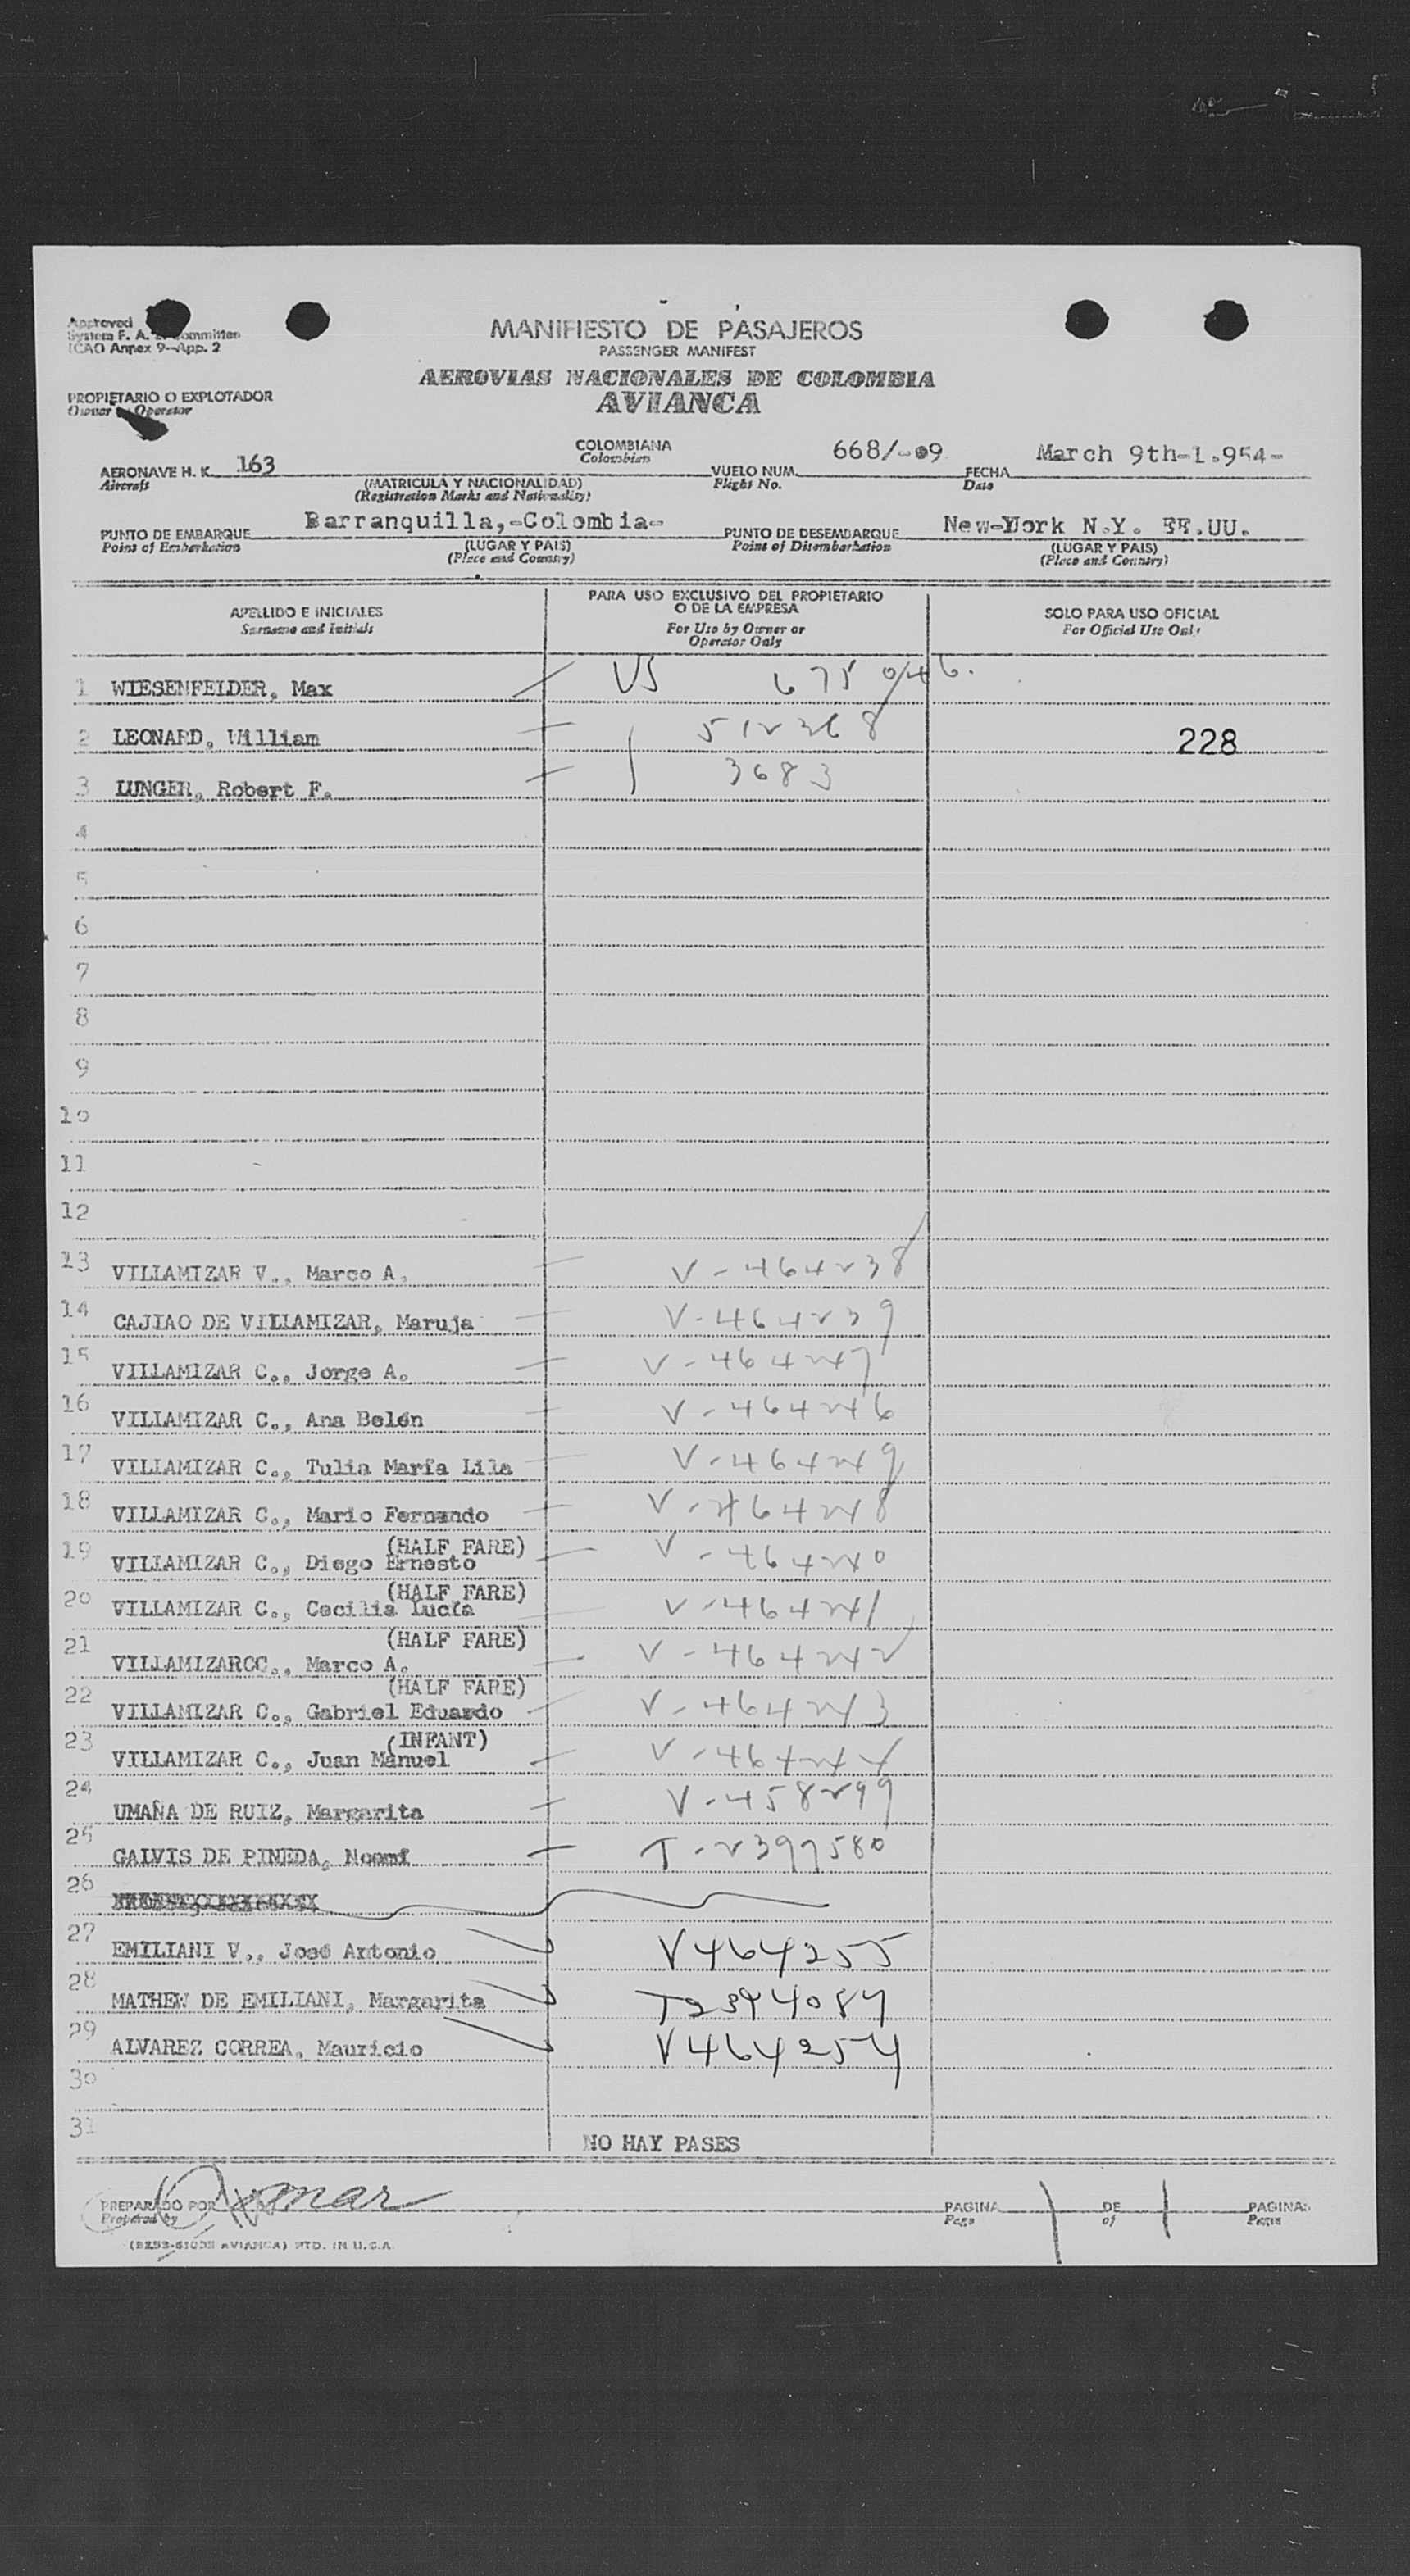 Approved
System F. A. Committee
ICAO Annex 9-App. 2
MANIFIESTO DE PASAJEROS
PASSENGER MANIFEST
AEROVIAS NACIONALES DE COLOMBIA
AVIANCA
PROPIETARIO O EXPLOTADOR
Owner or Operator
AERONAVE H. K. 163 COLOMBIANA VUELO NUM. 668/ 09 FECHA March 9th-1.954-
Aircraft (MATRICULA Y NACIONALIDAD) Colombian Flight No. Date
(Registration Marks and Nationality)
PUNTO DE EMBARQUE Barranquilla,-Colombia- PUNTO DE DESEMBARQUE New-York N.Y. EE.UU.
Point of Embarkation (LUGAR Y PAIS) Point of Disembarkation (LUGAR Y PAIS)
(Place and Country) (Place and Country)
APELLIDO E INICIALES PARA USO EXCLUSIVO DEL PROPIETARIO O DE LA EMPRESA SOLO PARA USO OFICIAL
Surname and Initials For Use by Owner or Operator Only For Official Use Only
1 WIESENFELDER, Max US 675 046.
2 LEONARD, William 512368 228
3 LUNGER, Robert F. 3683
4
5
6
7
8
9
10
11
12
13 VILLAMIZAR V., Marco A. V-464238
14 CAJIAO DE VILLAMIZAR, Maruja V-464239
15 VILLAMIZAR C., Jorge A. V-464247
16 VILLAMIZAR C., Ana Belén V-464246
17 VILLAMIZAR C., Tulia María Lila V-464249
18 VILLAMIZAR C., Mario Fernando V-464248
(HALF FARE)
19 VILLAMIZAR C., Diego Ernesto V-464240
(HALF FARE)
20 VILLAMIZAR C., Cecilia Lucía V-464241
(HALF FARE)
21 VILLAMIZAROC., Marco A. V-464242
(HALF FARE)
22 VILLAMIZAR C., Gabriel Eduardo V-464243
(INFANT)
23 VILLAMIZAR C., Juan Manuel V-464244
24 UMAÑA DE RUIZ, Margarita V-458299
25 GALVIS DE PINEDA, Noemí T-2397580
26
27 EMILIANI V., José Antonio V464255
28 MATHEW DE EMILIANI, Margarita T2394084
29 ALVAREZ CORREA, Mauricio V464254
30
31 NO HAY PASES
PREPARADO POR PAGINA 1 DE 1 PAGINAS
Prepared by Page of Pages
AVIANCA) PTD. IN U.S.A.